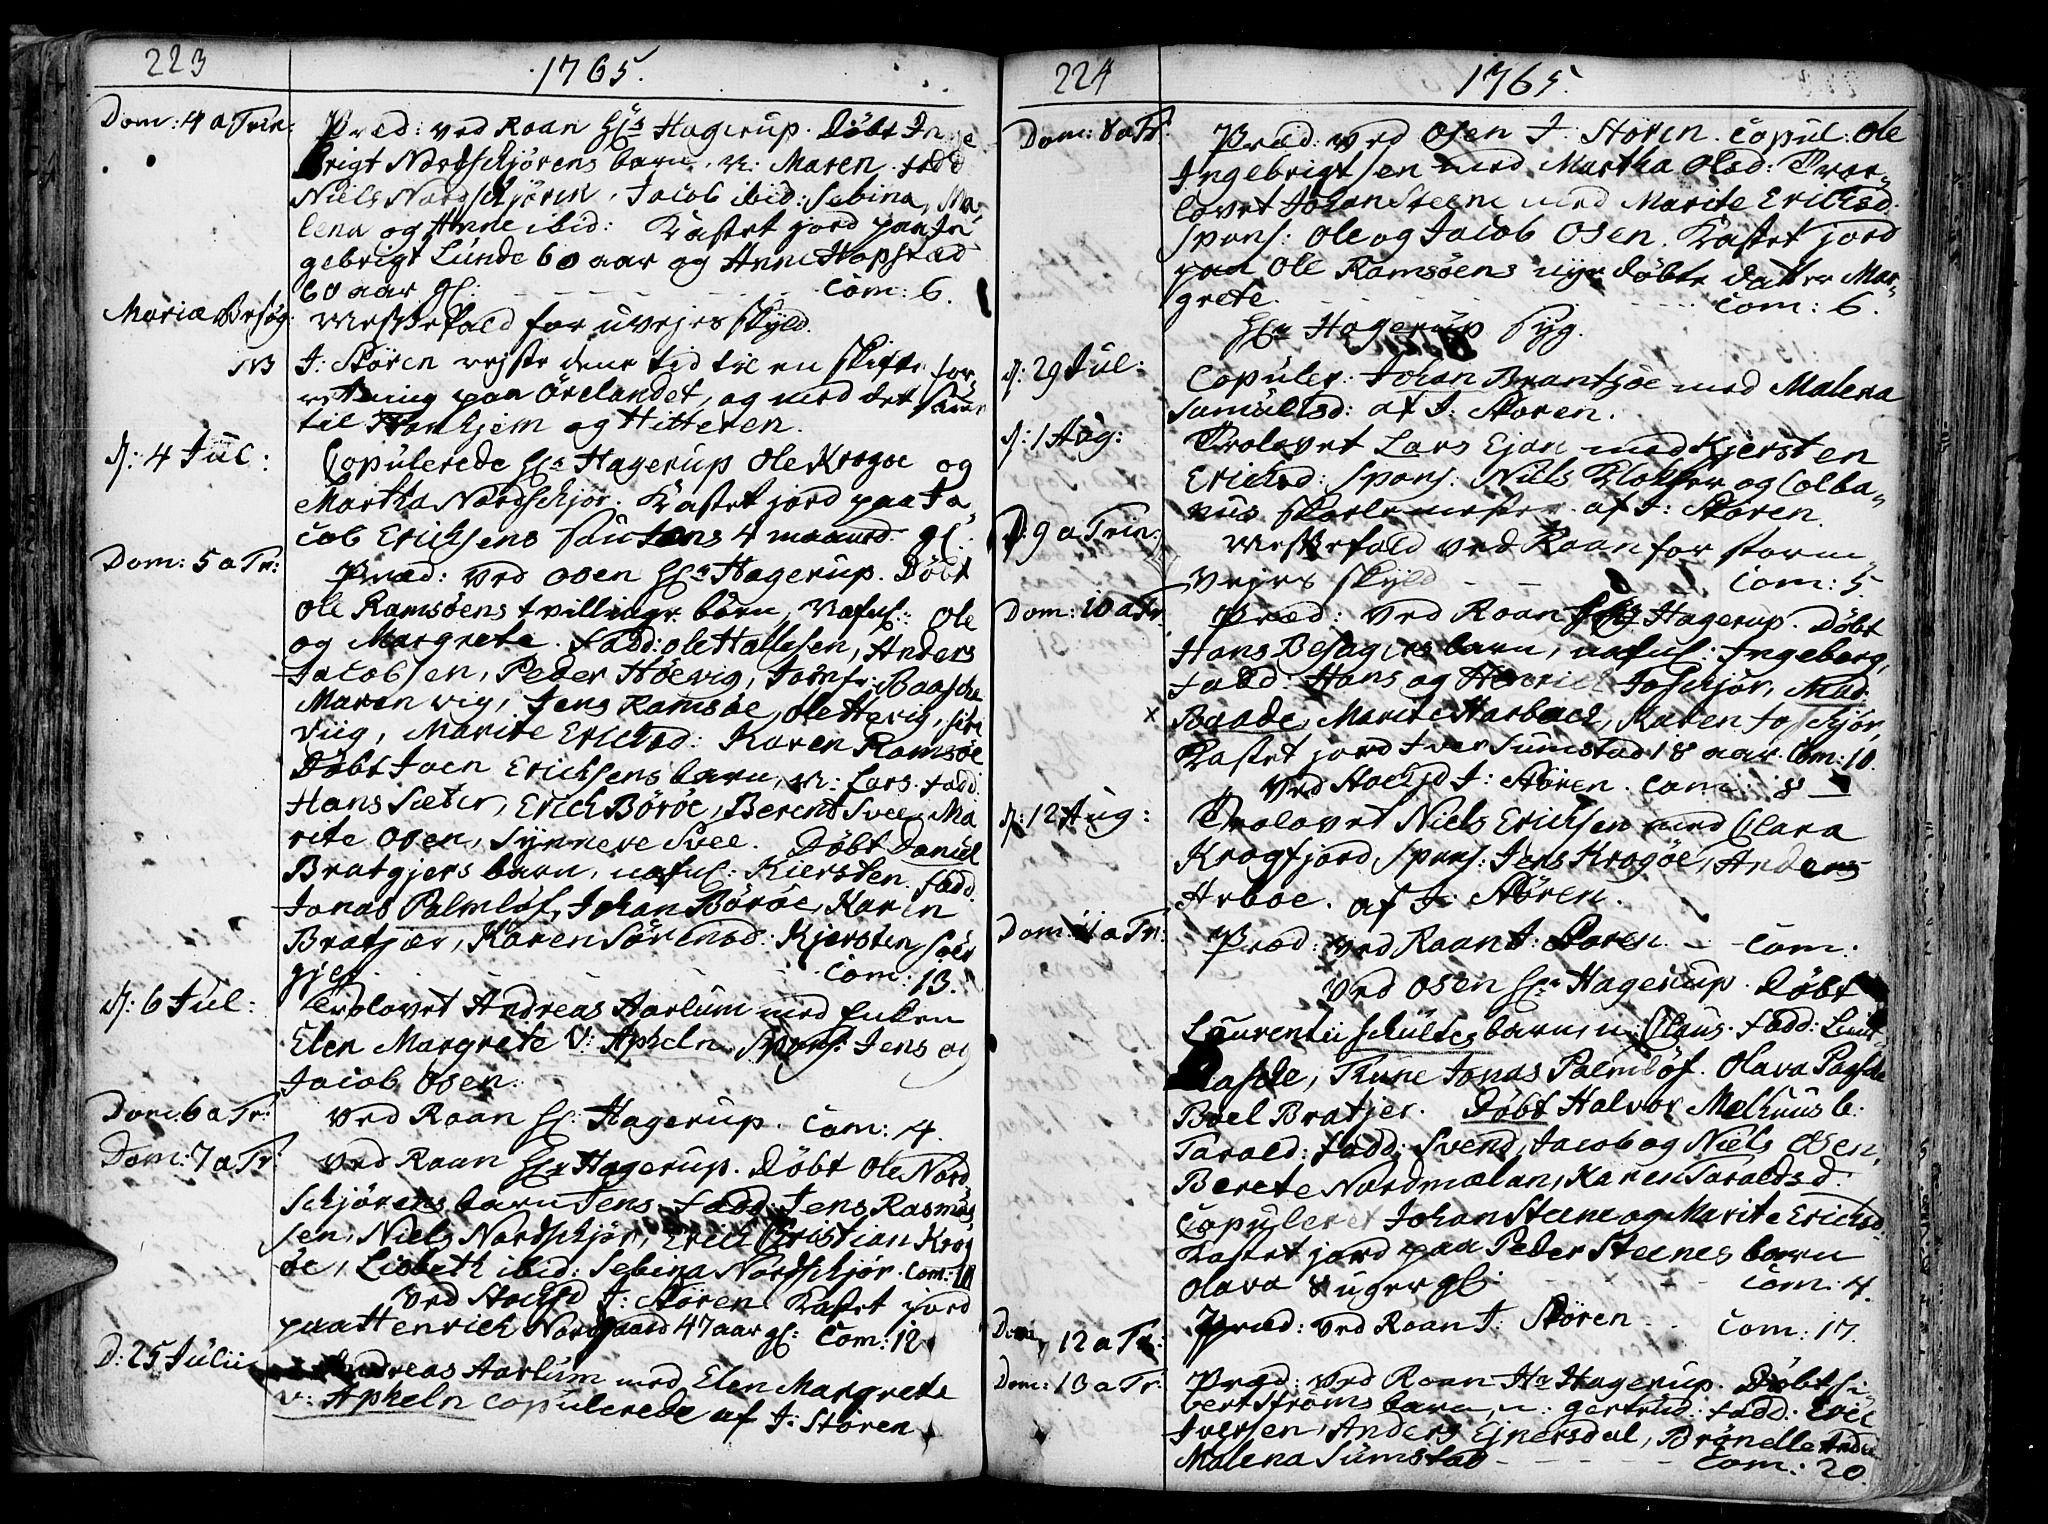 223
1765.
Dom: 4 a Trin:
Præd: ved Roan Hr: Hagerup. Döbt Inge
brigt Nordschjörens barn. n: Maren. fadd
Niels Nordschjören, Jacob ibid: Sebina, Ma
lena og Anne ibid: Kastet jord paa In
gebrigt Lunde 60 aar og Anne Hopstad
60 aar gl: Com: 6.
Mariæ Besøg:
Messefald for uvejrs skyld.
NB
J: Stören rejste denne tid til en Skifte for
retning paa Örelandet, og med det samme
til Tronhjem og Hitteren.
d: 4 Jul:
Copulerede Hr: Hagerup Ole Krogöe og
Martha Nordschjör. Kastet jord paa Ja,
cob Erichsens 4 maaned. gl:
Dom: 5 a Tr:
Præd: ved Osen Hr: Hagerup. Döbt
Ole Ramsöens tvillinge börn, Nafnl: Ole
og Margrete. fadd: Ole Hallesen, Anders
Jacobsen, Peder Höevig, Jomfr: Baasche
Maren vig, Jens Ramsöe, Ole Hevig,
viig, Marite Erichsd: Karen Ramsöe
Döbt Joen Erichsens barn, n: Lars. fadd:
Hans Sæter, Erich Böröe, Berent Svee, Ma
rite Osen, Synnere Svee. Döbt Daniel
Bratgjers barn, nafnl: Kiersten. fadd.
Jonas Palmlöf, Johan Böröe, Karen
Bratjær, Karen Sörensd: Kjersten Sör
gjer. Com: 13.
d: 6 Jul:
Trolovet Andreas Aarlum med Enken
Elen Margrete V: Apheln, Spons: Jens og
Jacob Osen.
Dom: 6 a Tr:
Ved Roan Hr: Hagerup. Com: 4.
Dom: 7 a Tr:
Ved Roan Hr: Hagerup. Döbt Ole Nord
Schjörens barn Jens. fadd: Jens Rasmus,
sen, Niels Nordschjör, Erich Christian Krog
öe, Lisbeth ibid: Sebina Nordschjör. Com: 10
Ved Stochsd J: Stören Kastet jord
paa Henrich Norgaard 47 aar gl: Com: 12
D: 25 Julii
Andreas Aarlum med Elen Margrete
v: Apheln copulerede af J: Stören
224
1765.
Dom: 8 a Tr.
Præd: ved Osen J: Stören. Copul: Ole
Ingebrigtsen med Martha Olsd: Troe-
lovet Johan Steene med Marite Erichsd.
Spons: Ole og Jacob Osen. Kastet jord
paa Ole Ramsöens nye döbte datter Mar-
grete. Com: 6.
Hr: Hagerup Syg.
d: 29 Jul:
Copuler: Johan Brantsöe med Malena
Samuelsd: af J: Stören.
d: 1 Aug:
Trolovet Lars Ejan med Kjersten
Erichsd: Spons: Niels Klokker og Colba-
nus Skolemester af J: Stören.
D: 9 a Trin:
Messefald ved Roan for storm
Vejrs skyld Com: 5.
Dom: 10 a Tr.
Præd: ved Roan Hr: Hagerup. Döbt
Hans Besagers barn, nafnl: Ingeborg,
fadd: Hans og Henrich Foschjör, Mad:
x Baade, Marite Harbach, Karen Foschjör,
Kastet jord Iver Sumstad 18 aar. Com: 10.
Ved Stochsd J: Stören. Com: 8
d: 12 Aug:
Trolovet Niels Erichsen med Clara
Krogfjord Spons: Jens Krogöe, Anders
Arboe. af J: Stören.
Dom: 11 a Tr:
Præd: ved Roan J: Stören. Com:
Ved Osen Hr: Hagerup. Döbt
Laurentii Schultes barn, n: Claus. fadd: Lieut-
Baasche, Thune Jonas Palmlöf. Olava Paasche
Boel Bratjer. Döbt Halvor Melhuus b:
Tarald: fadd: Svend, Jacob og Niels Osen,
Berete Nordmælan, Karen Taraldsd.
Copuleret Johan Steene og Marite Erichsd:
Kastet jord paa Peder Steenes barn
Olava 8 uger gl: Com: 4.
Dom 12 a Tr:
Præd: ved Roan J: Stören Com: 17.
Dom: 13 a Tr:
Præd: ved Roan Hr Hagerup. Döbt Si-
bert Ströms barn, n: Gertrud: fadd: Eric
Iversen, Anders Ejnersdal, Brönelle
Malena Sumstad Com: 20.